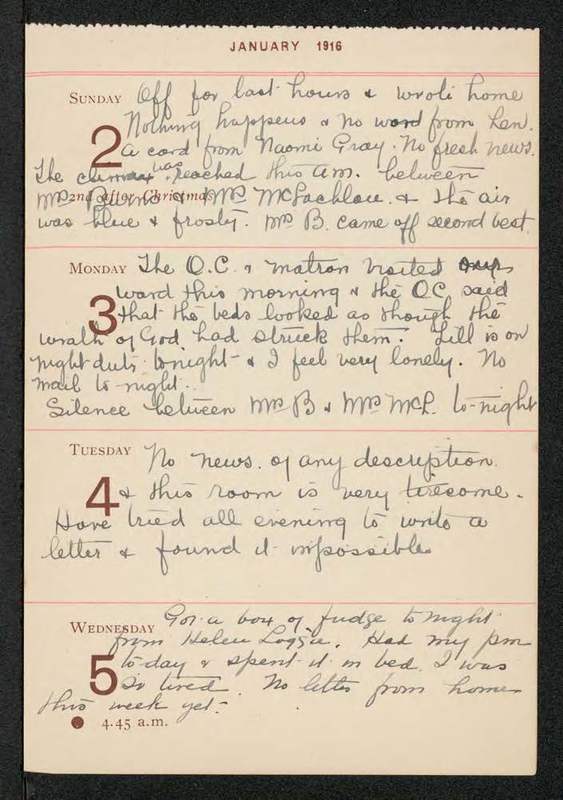 JANUARY 1916
SUNDAY Off for last hours & wrote home
Nothing happens & no word from Len.
2 a card from Naomi Gray. No fresh news.
The climax was reached this A.M. between
2nd after Christmas
Mrs B & Mrs McLachlan. & the air
was blue & frosty. Mrs B. came off second best.
MONDAY The O.C. & matron visited our
ward this morning & the OC said
3 that the beds looked as though the
wrath of God had struck them. Lill is on
night duty tonight & I feel very lonely. No
mail to-night.
Silence between Mrs B & Mrs McL. to-night
TUESDAY No news of any description
4 & this room is very tiresome.
Have tried all evening to write a
letter & found it impossible
WEDNESDAY Got a box of fudge tonight
from Helen Loggie. Had my pm
5 to-day & spent it in bed I was
so tired. No letter from home
this week yet.
4.45 a.m.